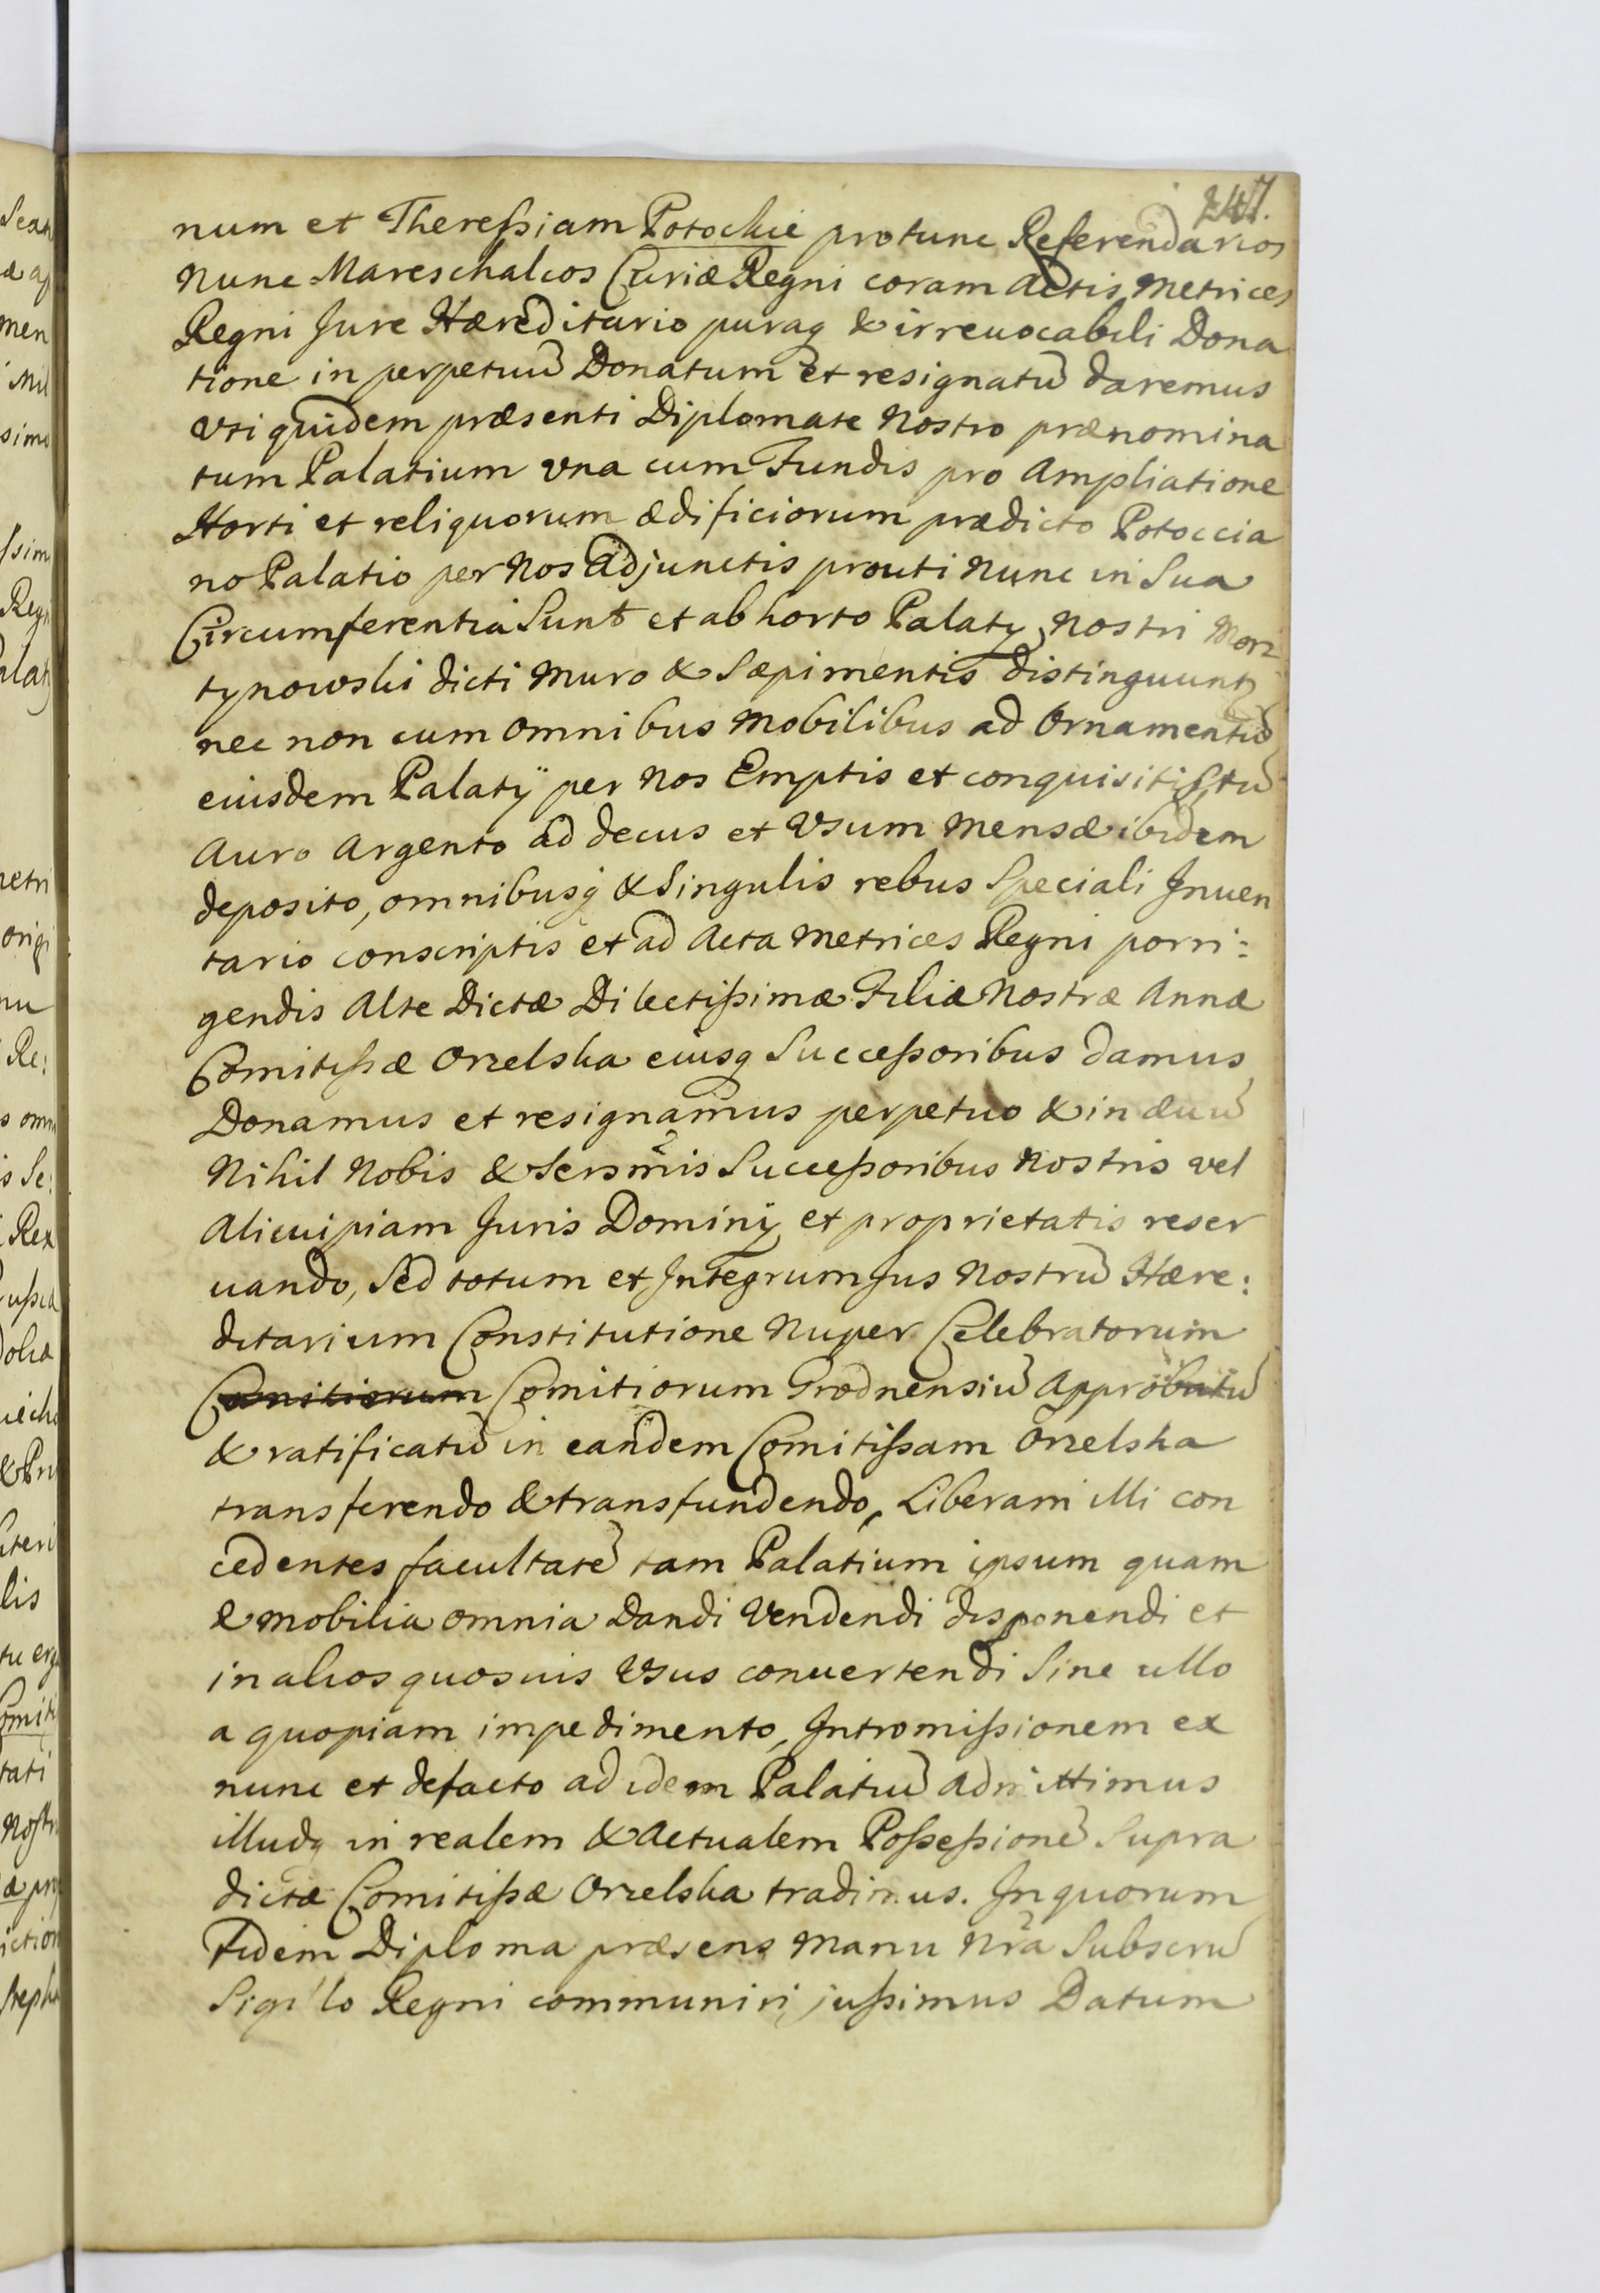 247.
num et Theressiam Potockie protunc Referendarios
Nunc Mareschalcos Curiæ Regni coram Actis Metrices
Regni Jure Hæreditario puraq & irreuocabili Dona
tione in perpetuũ Donatum et resignatũ daremus
Vti quidem præsenti Diplomate Nostro prænomina
tum Palatium vna cum Fundis pro Ampliatione
Horti et reliquorum ædificiorum prædicto Potoccia
no Palatio per Nos Adjunctis prouti Nunc in Sua
Circumferentia Sunt et ab horto Palaty Nostri Morz
tynowski dicti Muro & Sæpimentis distinguunt
nec non cum omnibus Mobilibus ad Ornamentũ
eiusdem Palatÿ per Nos Emptis et conquisitis, tũ
Auro Argento ad decus et Vsum Mensæ ibidem
deposito, omnibusq & Singulis rebus Speciali Jnuen
tario conscriptis et ad Acta Metrices Regni porri:
gendis Alte Dictæ Dilectissimæ Filiæ Nostræ Annæ
Comitissæ Orzelska eiusq Successoribus damus
Donamus et resignamus perpetuo & in æuũ
Nihil Nobis & Sersmis Successoribus Nostris vel
Alicuipiam Juris Dominÿ et proprietatis reser
uando, Sed totum et Jntegrum Jus Nostrũ Hære:
ditarium Constitutione Nuper Celebratorum
Comitiorum Comitiorum Grodnensiũ Approbatũ
& ratificatũ in eandem Comitissam Orzelska
transferendo & transfundendo, Liberam illi con
cedentes facultatẽ tam Palatium ipsum quam
& mobilia omnia Dandi Vendendi disponendi et
in alios quosuis Vsus conuertendi Sine ullo
a quopiam impedimento, Jntromissionem ex
nunc et defacto ad idem Palatiũ admittimus
illudq in realem & Actualem Possessionẽ Supra
dictæ Comitissæ Orzelska tradimus. Jn quorum
Fidem Diploma præsens Manu Nra Subscrũ
Sigillo Regni communiri jussimus Datum